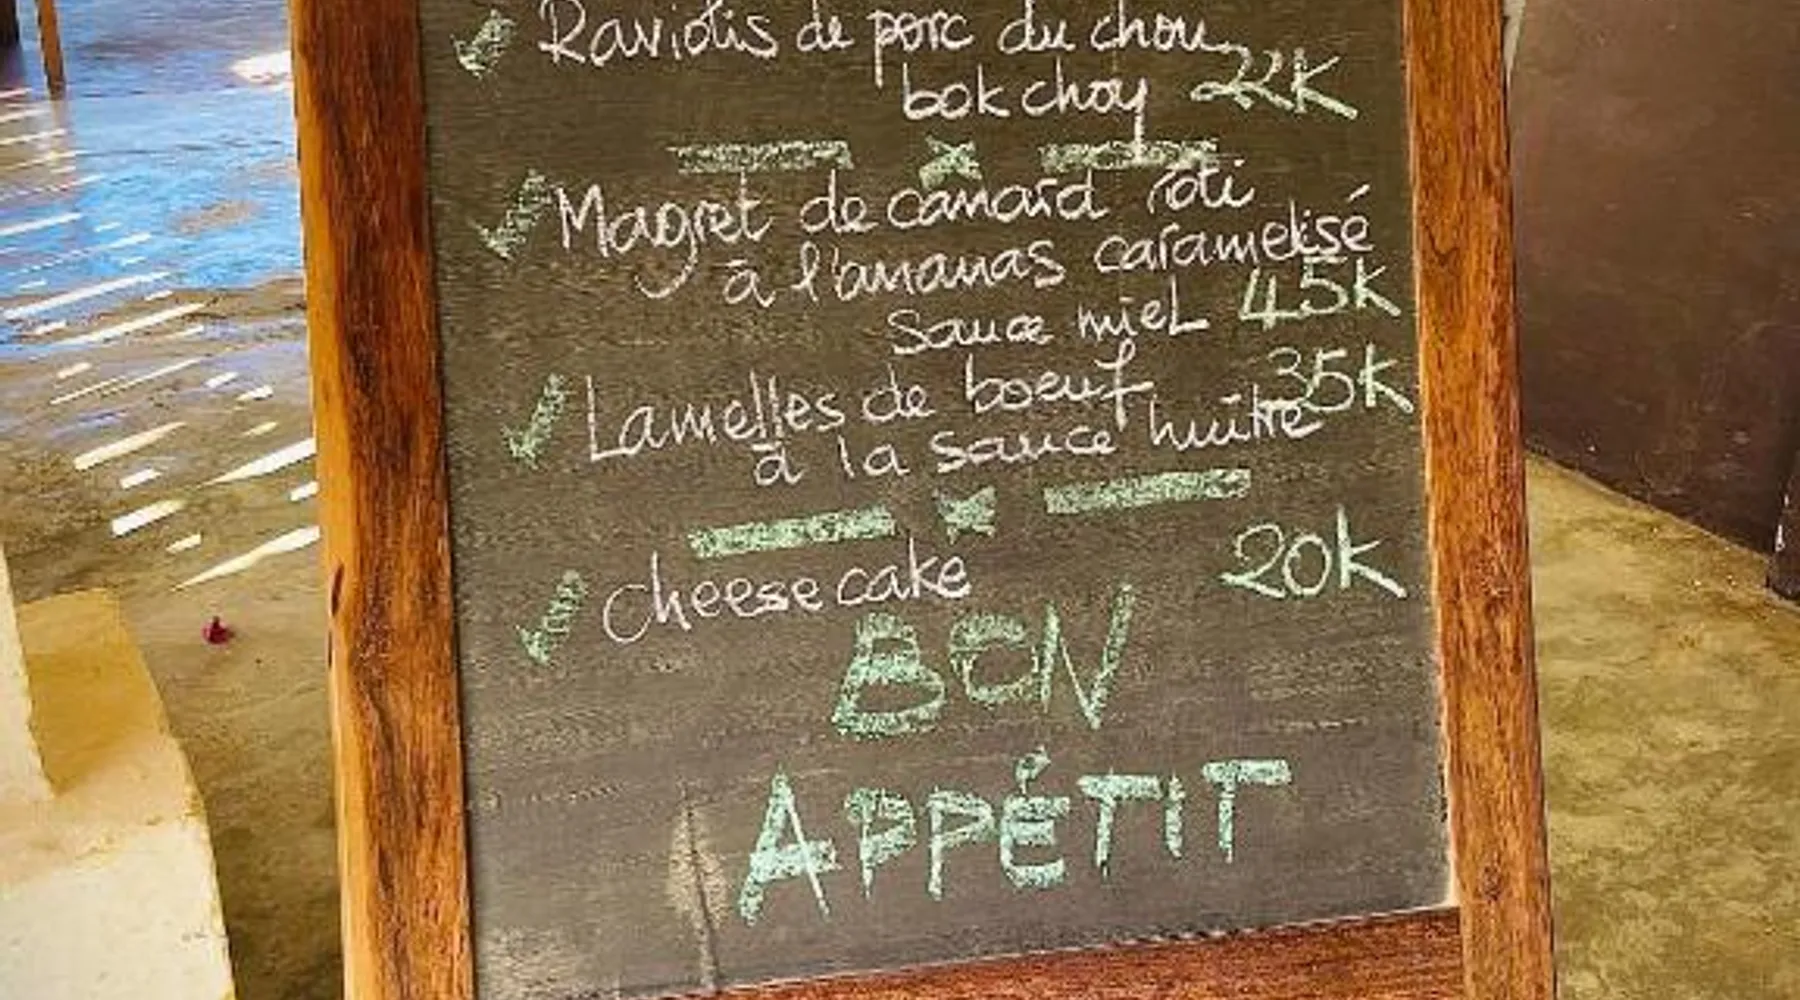 Raviolis de porc du chou
bok choy 22K
Magret de canard rôti
à l'ananas caramelisé
sauce miel 45K
Lamelles de boeuf 35K
à la sauce huître
Cheese cake 20K
BON
APPÉTIT